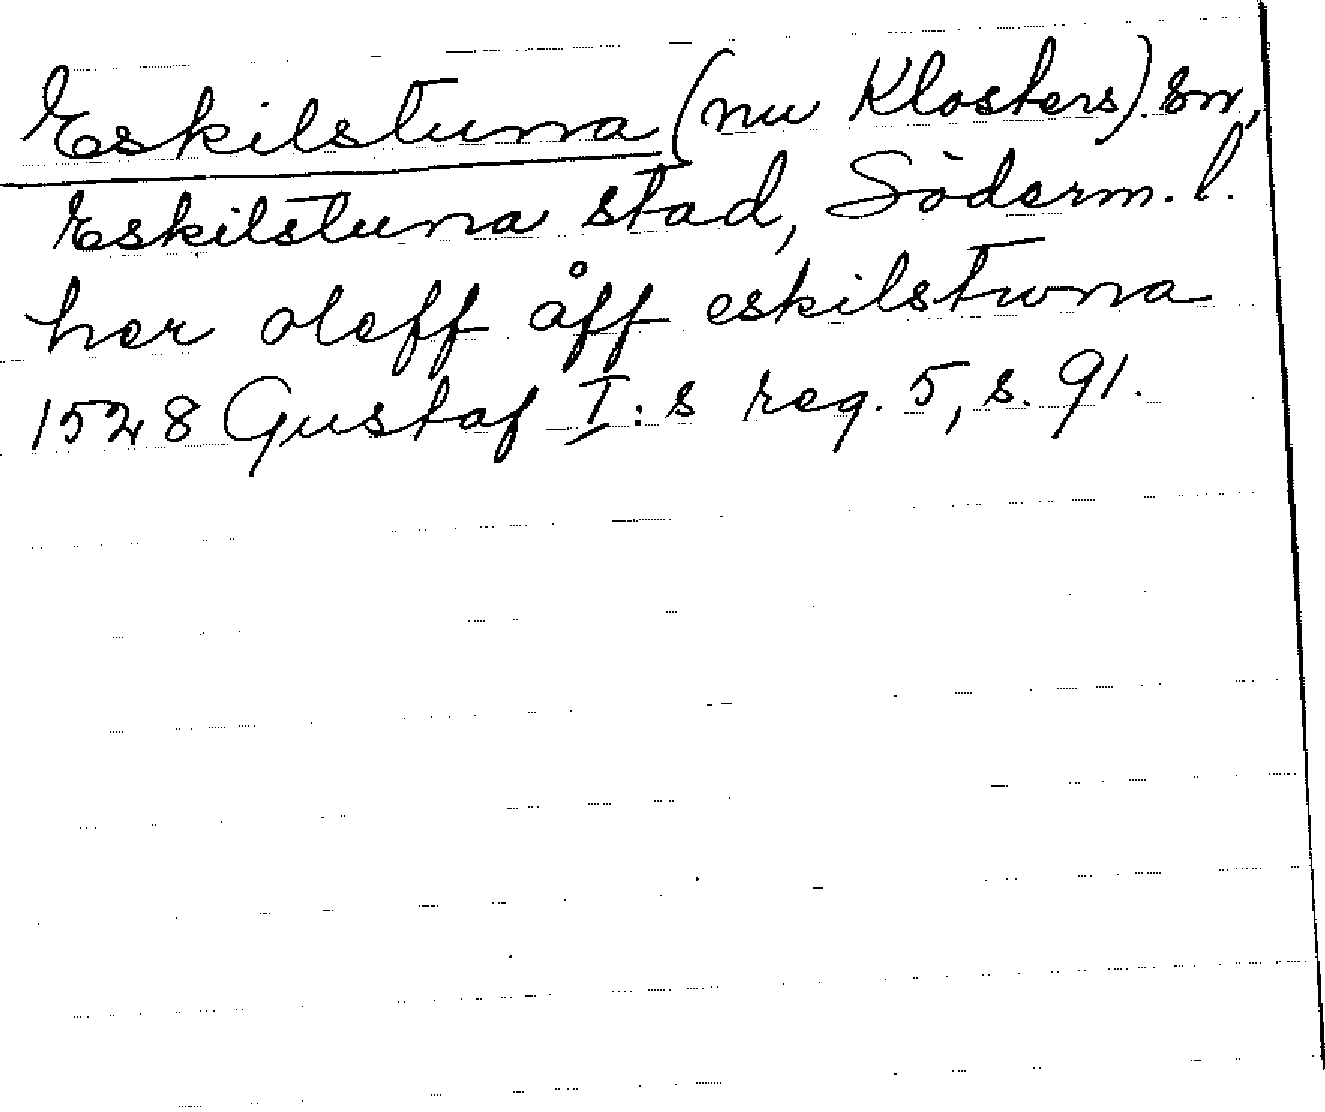 Eskilstuna (nu Klosters) sn,
Eskilstuna stad, Söderm. l.
her oleff åff eskilstwna
1528 Gustaf I:s reg. 5, s. 91.